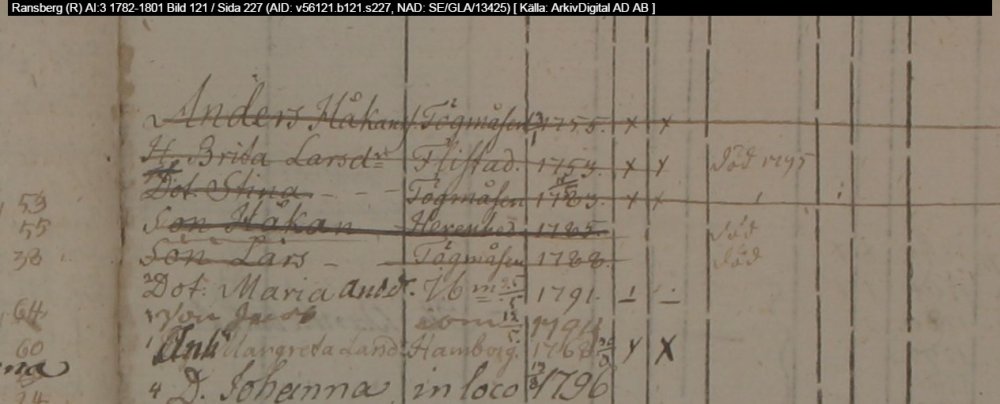 Ransberg (R) AI:3 1782-1801 Bild 121 / Sida 227 (AID: v56121.b121.s227, NAD: SE/GLA/13425) [ Källa: ArkivDigital AD AB ]
Anders Håkans Togmåsen 1755. x x
H. Brita Larsd Flistad. 1753. x x död 1795
Dot. Stina - - - Togmåsen 1783. x x
53
Son Håkan 1785. död
55
Son Lars - Togmåsen 1788. död
38
Dot. Maria And. 1791.
64 Son Jacob 1794
60 Margreta Larsd. Hamborg. 1768 x x
4 D. Johanna in loco 1796